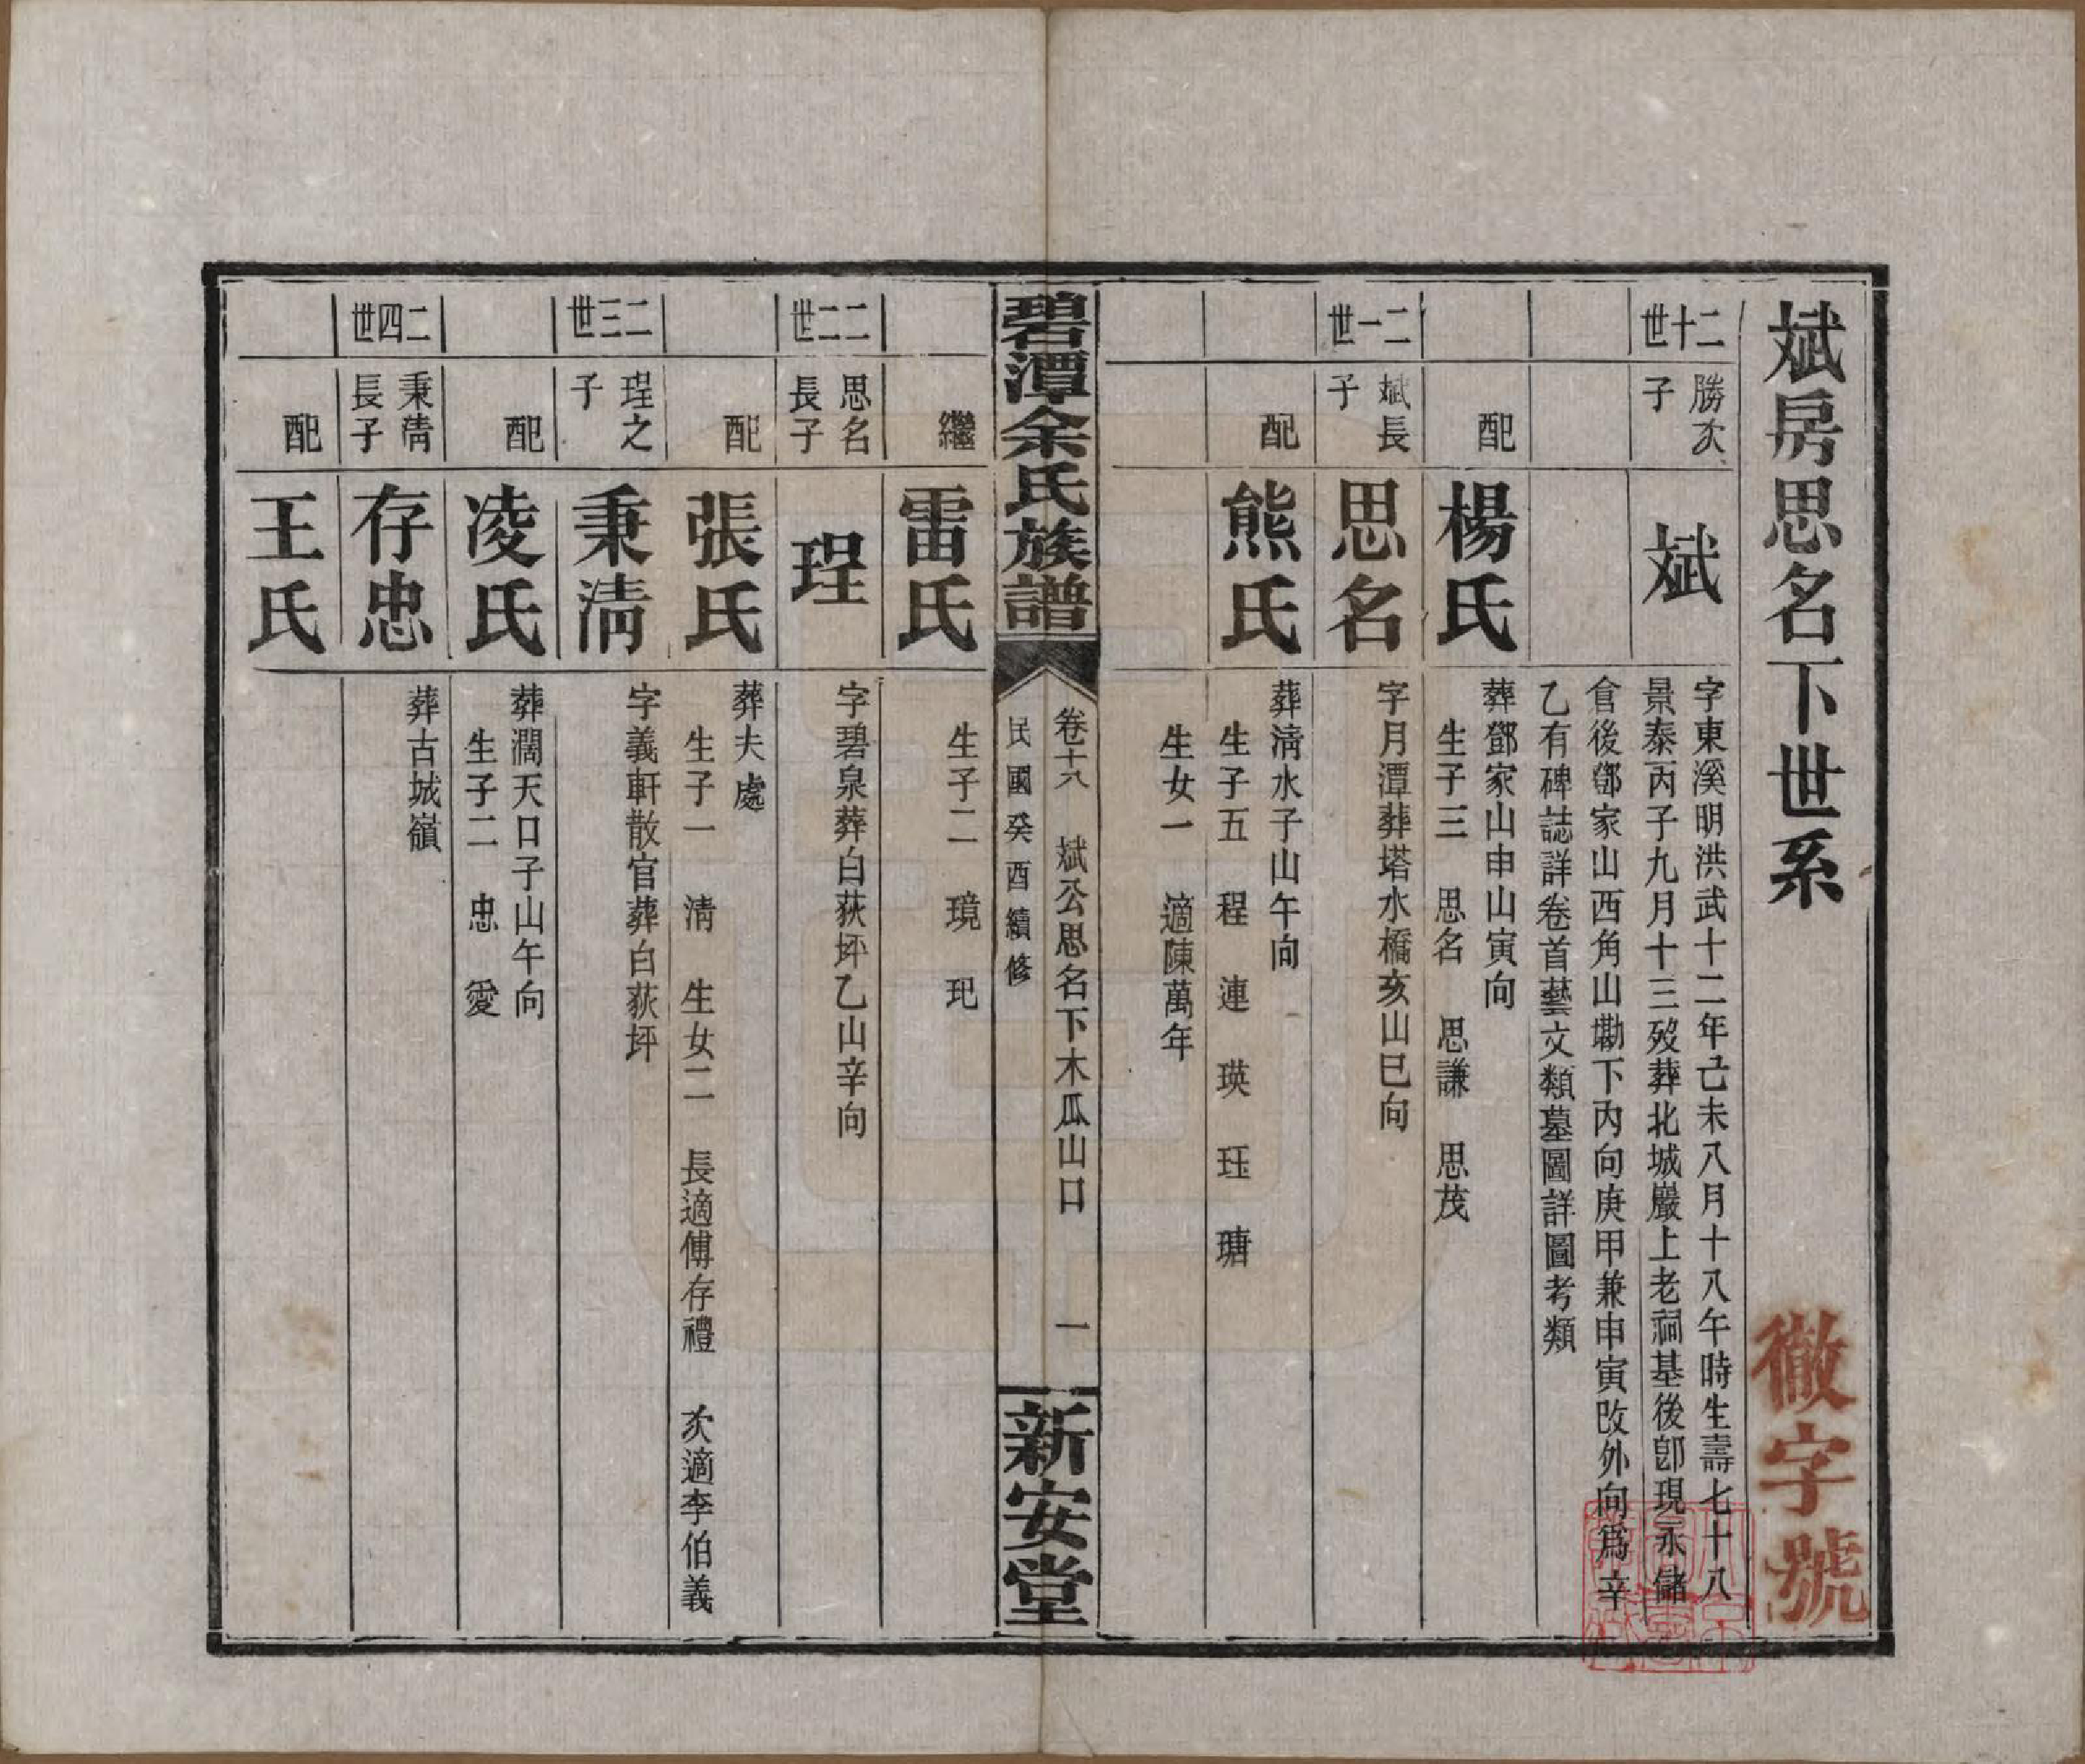 斌房思名下世系
徹字號
二十世
勝次子
斌
字東溪明洪武十二年己未八月十八午時生壽七十八
景泰丙子九月十三歿葬北城巖上老祠基後卽現永儲
倉後鄧家山西角山墈下內向庚甲兼申寅改外向爲辛
乙有碑誌詳卷首藝文類墓圖詳圖考類
配
楊氏
葬鄧家山申山寅向
生子三　思名　思謙　思茂
二一世
斌長子
思名
字月潭葬塔水橋亥山巳向
配
熊氏
葬淸水子山午向
生子五　程　連　瑛　珏　瑭
生女一　適陳萬年
碧潭余氏族譜
卷十八　斌公思名下木瓜山口　一
民國癸酉續修
新安堂
繼
雷氏
生子二　璄　玘
二二世
思名長子
珵
字碧泉葬白荻坪乙山辛向
配
張氏
葬夫處
生子一　淸　生女二　長適傅存禮　次適李伯義
二三世
珵之子
秉淸
字義軒散官葬白荻坪
配
凌氏
葬澗天口子山午向
生子二　忠　愛
二四世
秉淸長子
存忠
葬古城嶺
配
王氏